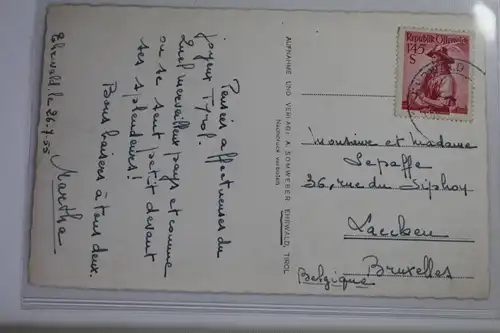 Ehrwald le 26.7.55
Pensées affectueuses du
joyeux Tyrol.
Quel merveilleux pays et comme
on se sent petit devant
ses splendeurs!
Bons baisers à tous deux.
Martha
AUFNAHME UND VERLAG: A. SOMWEBER, EHRWALD, TIROL
Nachdruck verboten
Republik Österreich
1'45
S
Monsieur et Madame
Lepaffe
36, rue du Siphon
Laeken
Bruxelles
Belgique